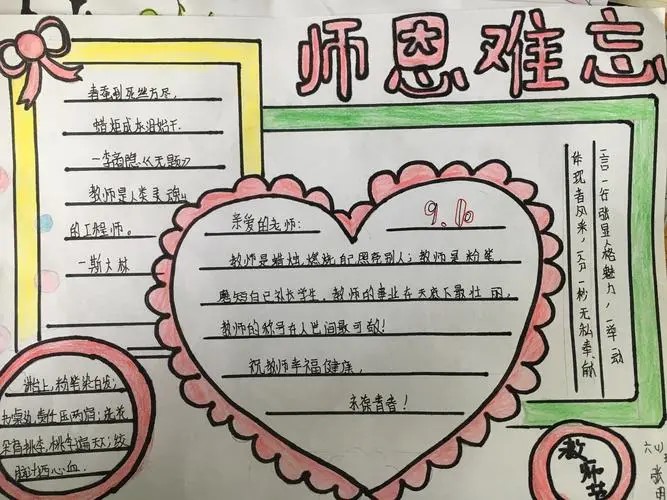 师恩难忘
春蚕到死丝方尽,
蜡炬成灰泪始干.
—李商隐《无题》
教师是人类灵魂
的工程师。
—斯大林
亲爱的老师:
9.10
教师是蜡烛,燃烧自己恩惠别人;教师是粉笔,
磨短自己补长学生。教师的事业在天底下最壮丽,
教师的称号在人世间最可敬!
祝教师幸福健康,
永保青春!
一言一行张显人格魅力,一举一动
体现着风采,一分一秒无私奉献
讲台上,粉笔染白发;
责任压两肩;
桃李遍天下;
心血.
教师节